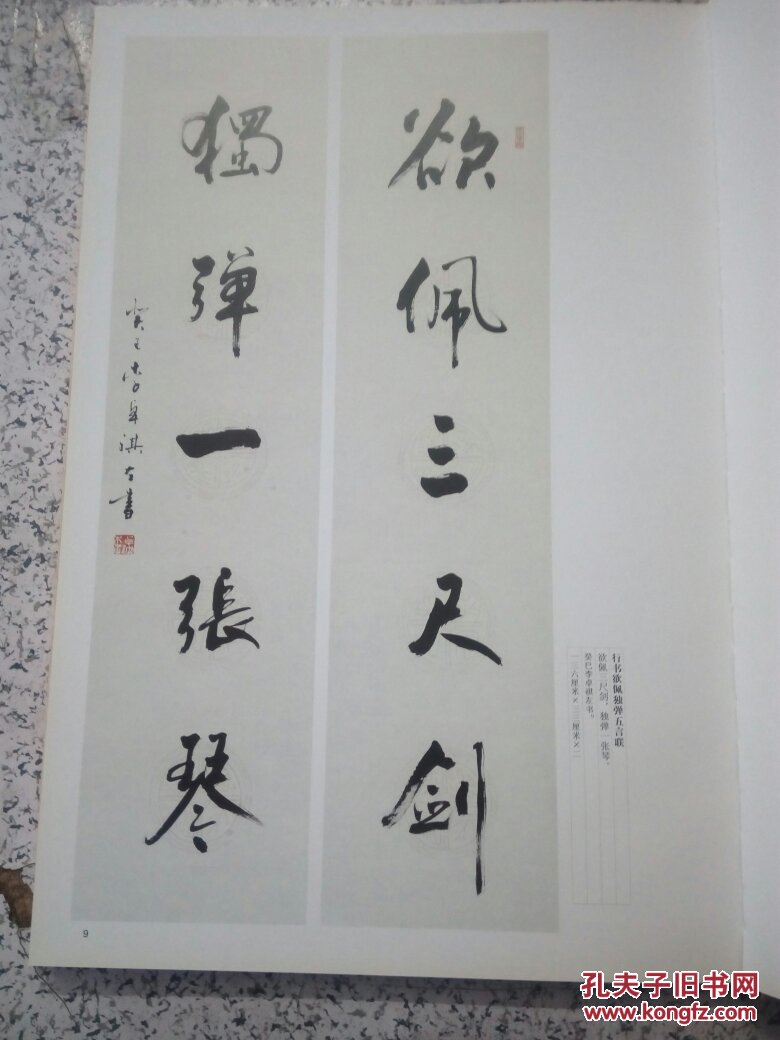 欲佩三尺剑
獨弹一張琴
癸巳李卓祺左書
行书欲佩独弹五言联
欲佩三尺剑，独弹一张琴。
癸巳李卓祺左书。
一三六厘米×三三厘米×二
9
孔夫子旧书网
www.kongfz.com